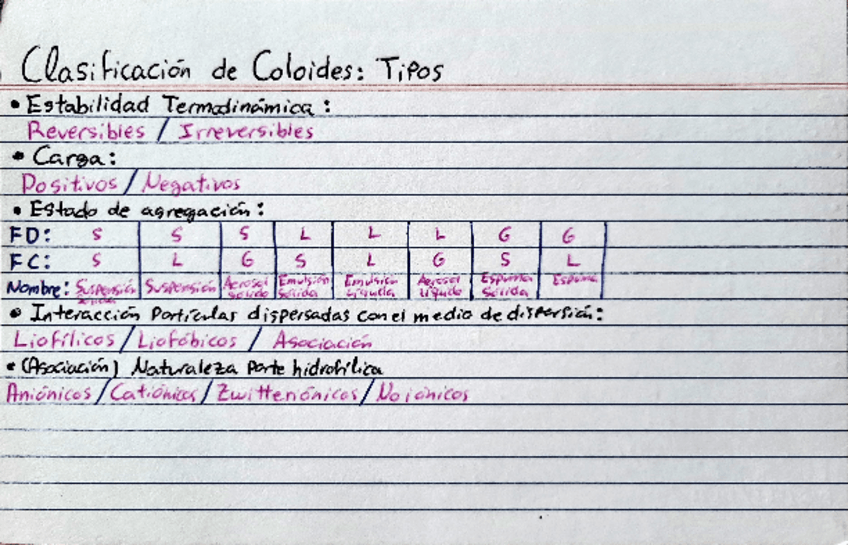 Clasificación de Coloides: Tipos
• Estabilidad Termodinámica:
Reversibles / Irreversibles
• Carga:
Positivos / Negativos
• Estado de agregación:
FD: S S S L L L G G
FC: S L G S L G S L
Nombre: Suspensión sólida Suspensión Aerosol sólido Emulsión sólida Emulsión Líquida Aerosol líquido Espuma sólida Espuma
• Interacción Partículas dispersadas con el medio de dispersión:
Liofílicos / Liofóbicos / Asociación
• (Asociación) Naturaleza parte hidrofílica
Aniónicos / Catiónicos / Zwitteriónicos / No iónicos